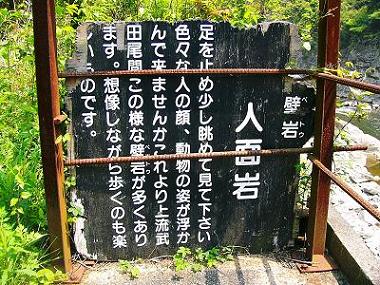 壁岩
ペトウ
人面岩
足を止め少し眺めて見て下さい
色々な人の顔、動物の姿が浮か
んで来ませんかこれより上流武
田尾間この様な壁岩が多くあり
ます。想像しながら歩くのも楽
しいものです。